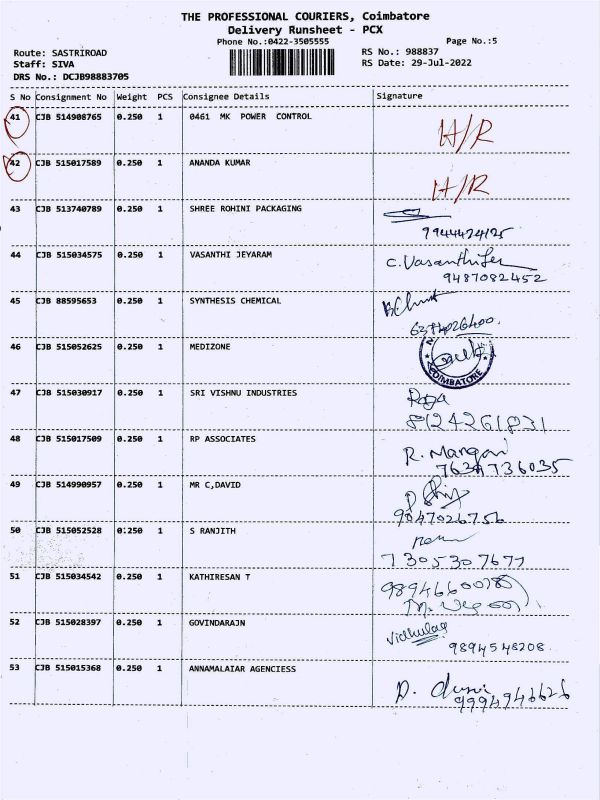 THE PROFESSIONAL COURIERS, Coimbatore
Delivery Runsheet - PCX
Phone No.:0422-3505555
Page No.:5
Route: SASTRIROAD
RS No.: 988837
Staff: SIVA
RS Date: 29-Jul-2022
DRS No.: DCJB98883705
S No Consignment No Weight PCS Consignee Details Signature
41 CJB 514908765 0.250 1 0461 MK POWER CONTROL H/R
42 CJB 515017589 0.250 1 ANANDA KUMAR H/R
43 CJB 513740789 0.250 1 SHREE ROHINI PACKAGING
9944424125
44 CJB 515034575 0.250 1 VASANTHI JEYARAM C. Vasanthi
9487082452
45 CJB 88595653 0.250 1 SYNTHESIS CHEMICAL
6374026400.
46 CJB 515052625 0.250 1 MEDIZONE
COIMBATORE
47 CJB 515030917 0.250 1 SRI VISHNU INDUSTRIES Raja
8124261831
48 CJB 515017509 0.250 1 RP ASSOCIATES R. Mangai
49 CJB 514990957 0.250 1 MR C,DAVID
9847026756
50 CJB 515052528 0.250 1 S RANJITH
7305307677
51 CJB 515034542 0.250 1 KATHIRESAN T
52 CJB 515028397 0.250 1 GOVINDARAJN
9894548208
53 CJB 515015368 0.250 1 ANNAMALAIAR AGENCIESS D.
9994946626